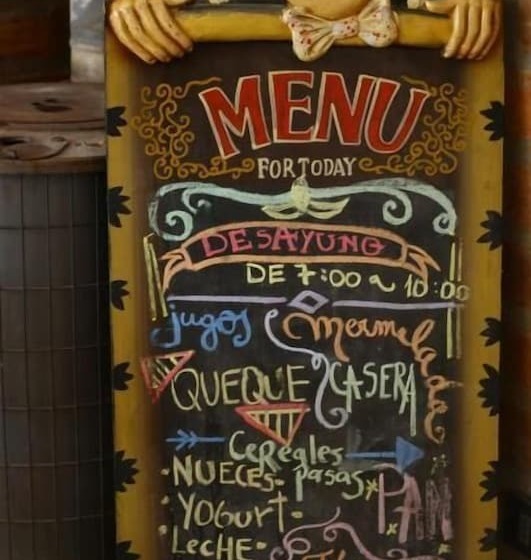 MENU
FOR TODAY
DESAYUNO
DE 7:00 a 10:00
jugos mermelada
QUEQUE CASERA
CeReales
·NUECES- Pasas* PAN
·YOGurt-
·LeCHE-